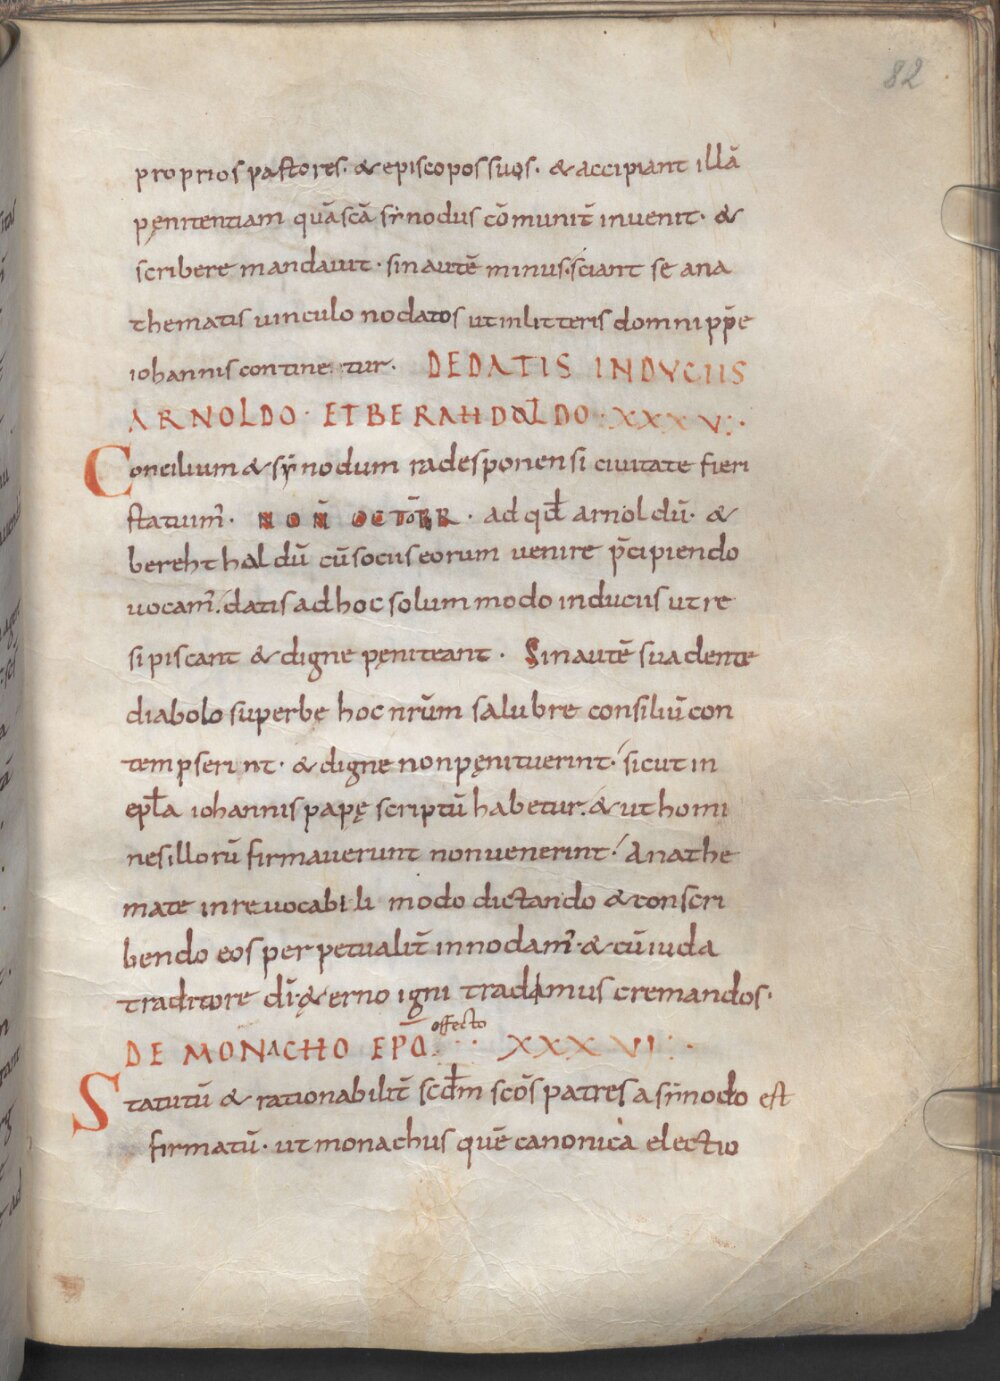 82
proprios pastores· & episcopos suos· & accipiant illā
pęnitentiam quā scā sẏnodus cōmunit̄ invenit· &
scribere mandavit· sin autē minus· sciant se ana
thematis vinculo nodatos ut in litteris domni pp̄e
iohannis continetur· DE DATIS INDVCIIS
ARNOLDO· ET BERAHDOLDO· XXXV·
Concilium & sẏnodum radesponensi civitate fieri
statuim̄· NON̄ OCTOB̄R· ad qd̄ arnoldū· &
berehthaldū cū sociis eorum venire p̄cipiendo
vocam̄· datis ad hoc solum modo induciis ut re
sipiscant & digne pęniteant· Sin autē suadente
diabolo superbę hoc nrūm salubre consiliū con
tempserint· & digne non pęnituerint· sicut in
epła iohannis papę scriptū habetur· & ut homi
nes illorū firmaverunt non venerint· Anathe
mate inrevocabili modo dictando & conscri
bendo eos perpetualit̄ innodam̄· & cū iuda
traditore dn̄i ę&erno igni tradimus cremandos·
DE MONACHO EP̄O effecto XXXVI·
Statutū & rationabilit̄ scd̄m scōs patres a sẏnodo est
firmatū· ut monachus quē canonica electio